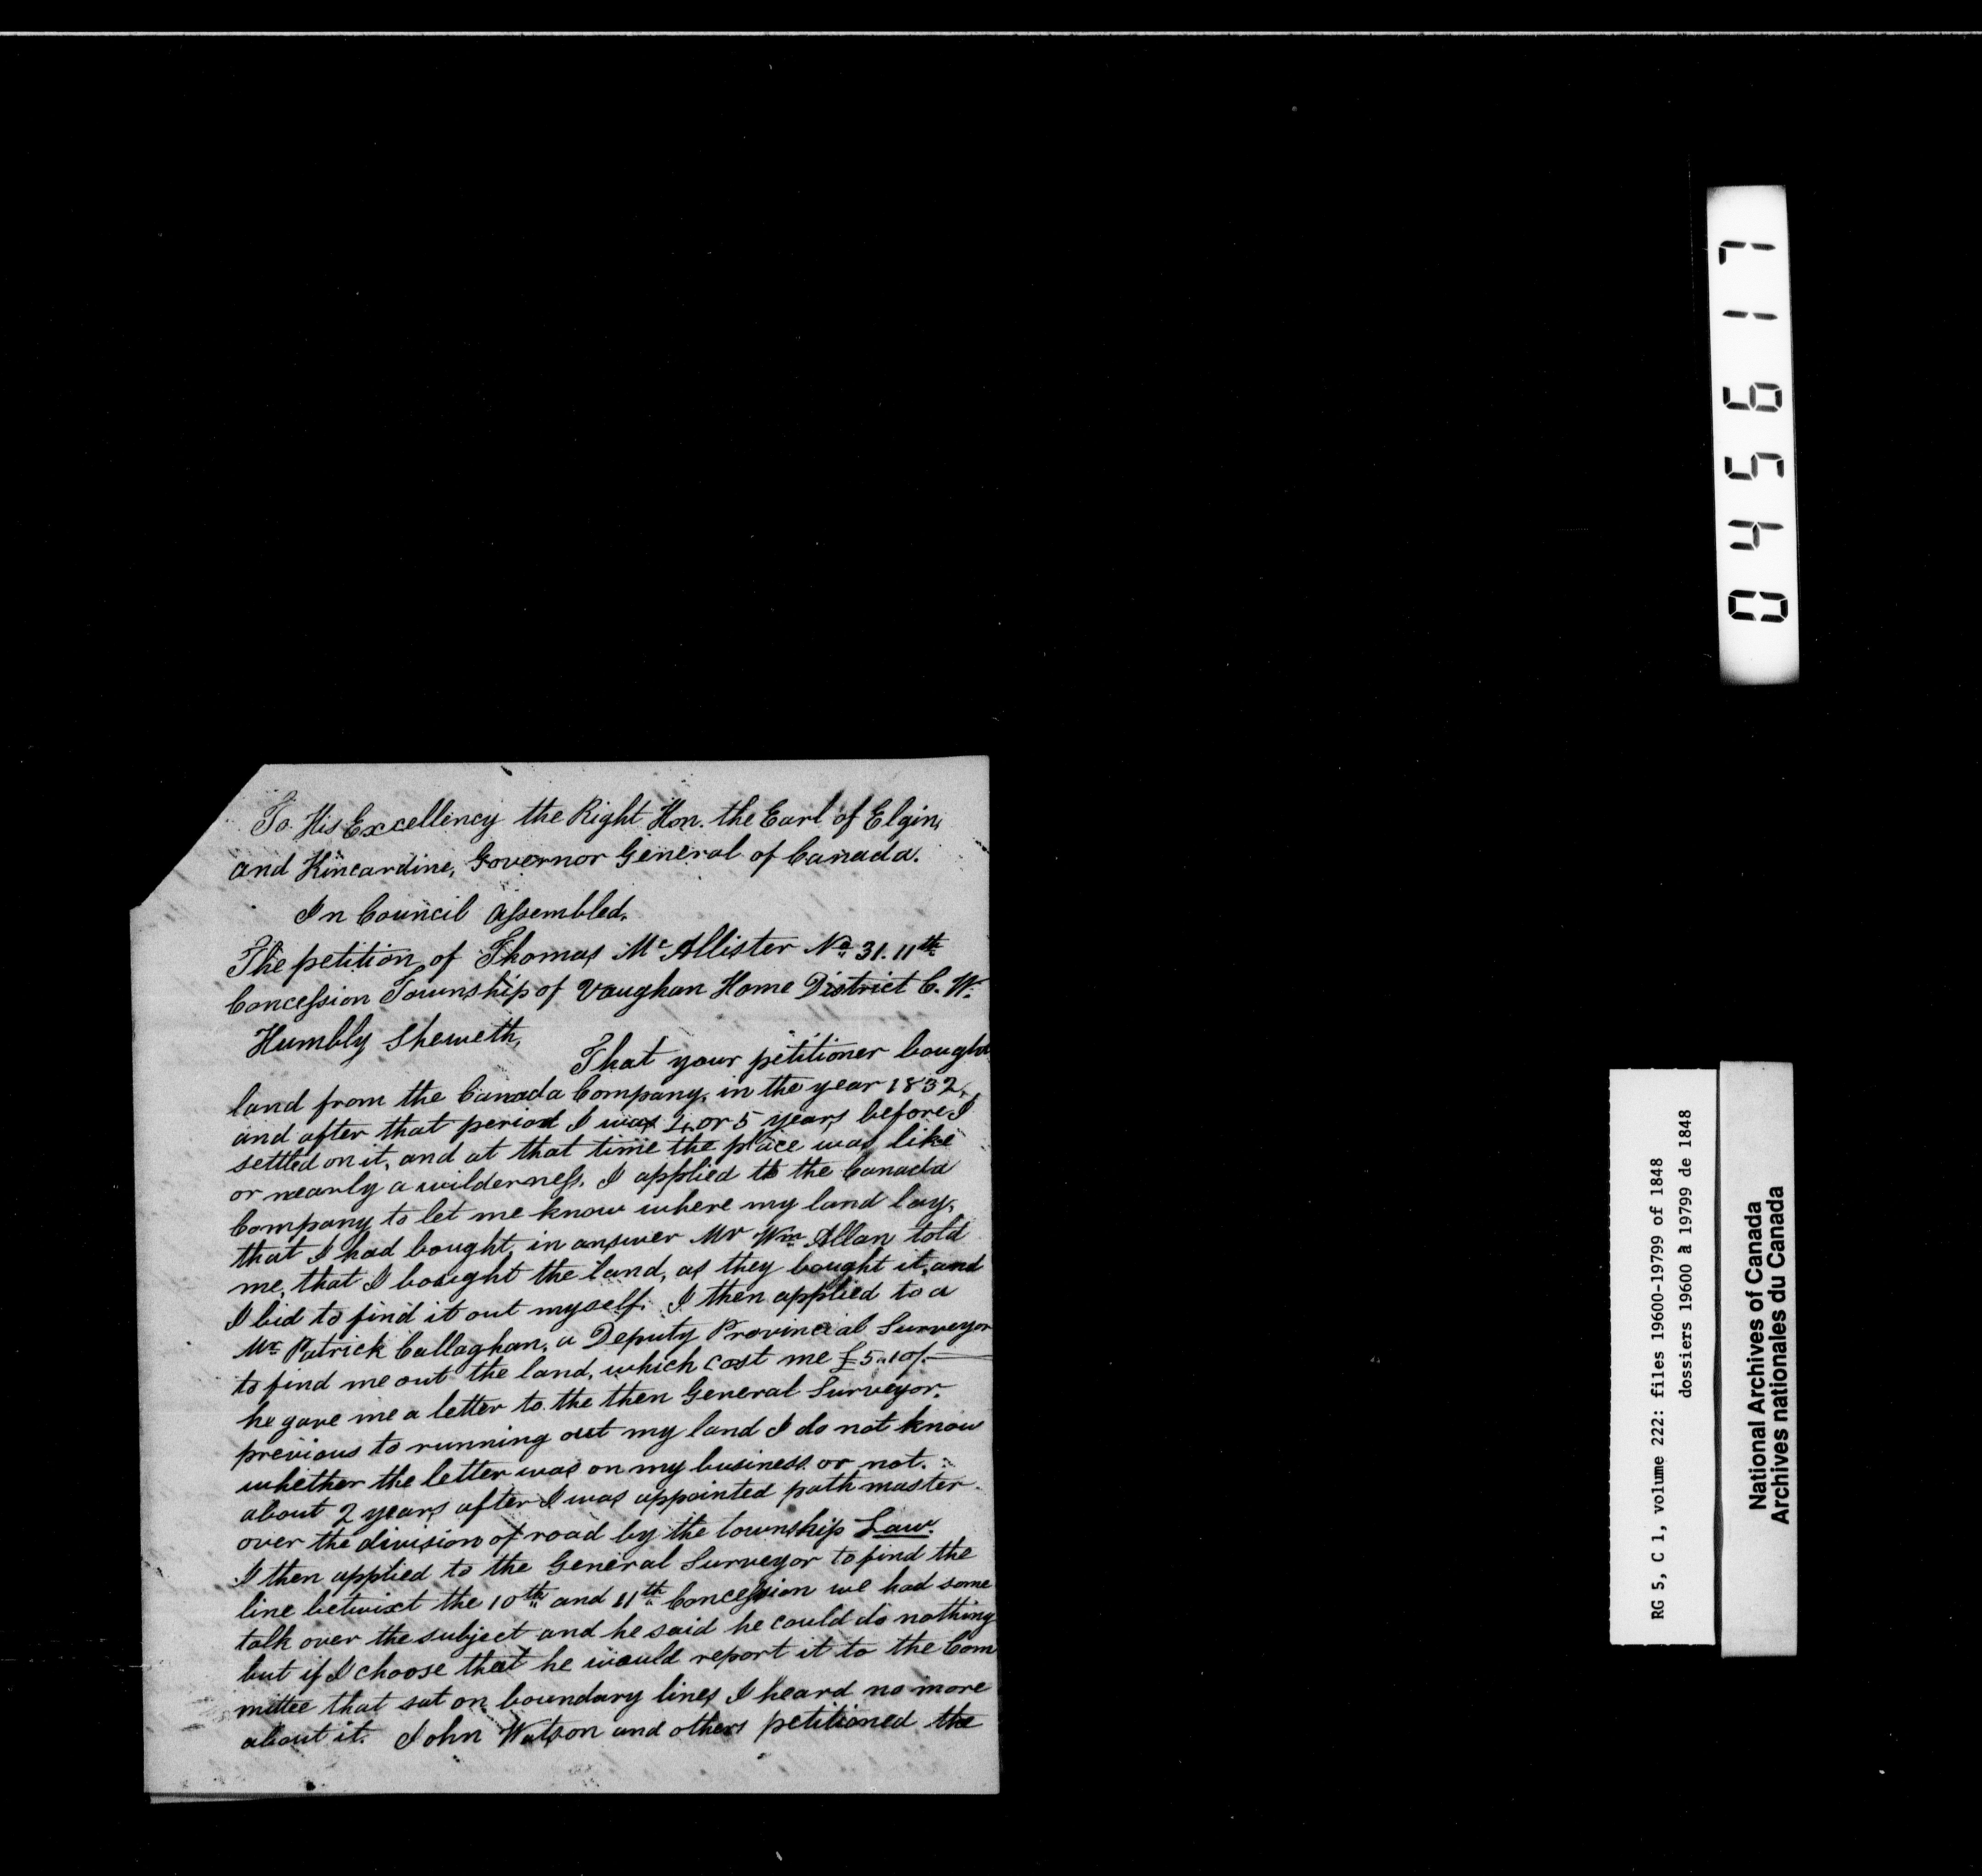 To His Excellency the Right Hon. the Earl of Elgin,
and Kincardine, Governor General of Canada.
In Council Assembled.
The petition of Thomas McAllister No. 31. 11th
Concession Township of Vaughan Home District C. W.
Humbly Sheweth,
That your petitioner bought
land from the Canada Company, in the year 1832,
and after that period I was 4 or 5 years before I
settled on it, and at that time the place was like
or nearly a wilderness. I applied to the Canada
Company to let me know where my land lay,
that I had bought, in answer Mr Wm. Allan told
me, that I bought the land, as they bought it, and
I bid to find it out myself. I then applied to a
Mr. Patrick Callaghan, a Deputy Provincial Surveyor
to find me out the land, which cost me £5..10/-
he gave me a letter to the then General Surveyor.
previous to running out my land I do not know
whether the letter was on my business or not.
about 2 years after I was appointed path master
over the division of road by the township Law.
I then applied to the General Surveyor to find the
line betwixt the 10th and 11th Concession we had some
talk over the subject and he said he could do nothing
but if I choose that he would report it to the Com
mittee that sat on boundary lines I heard no more
about it. John Watson and others petitioned the
045617
RG 5, C 1, volume 222: files 19600-19799 of 1848
dossiers 19600 à 19799 de 1848
National Archives of Canada
Archives nationales du Canada